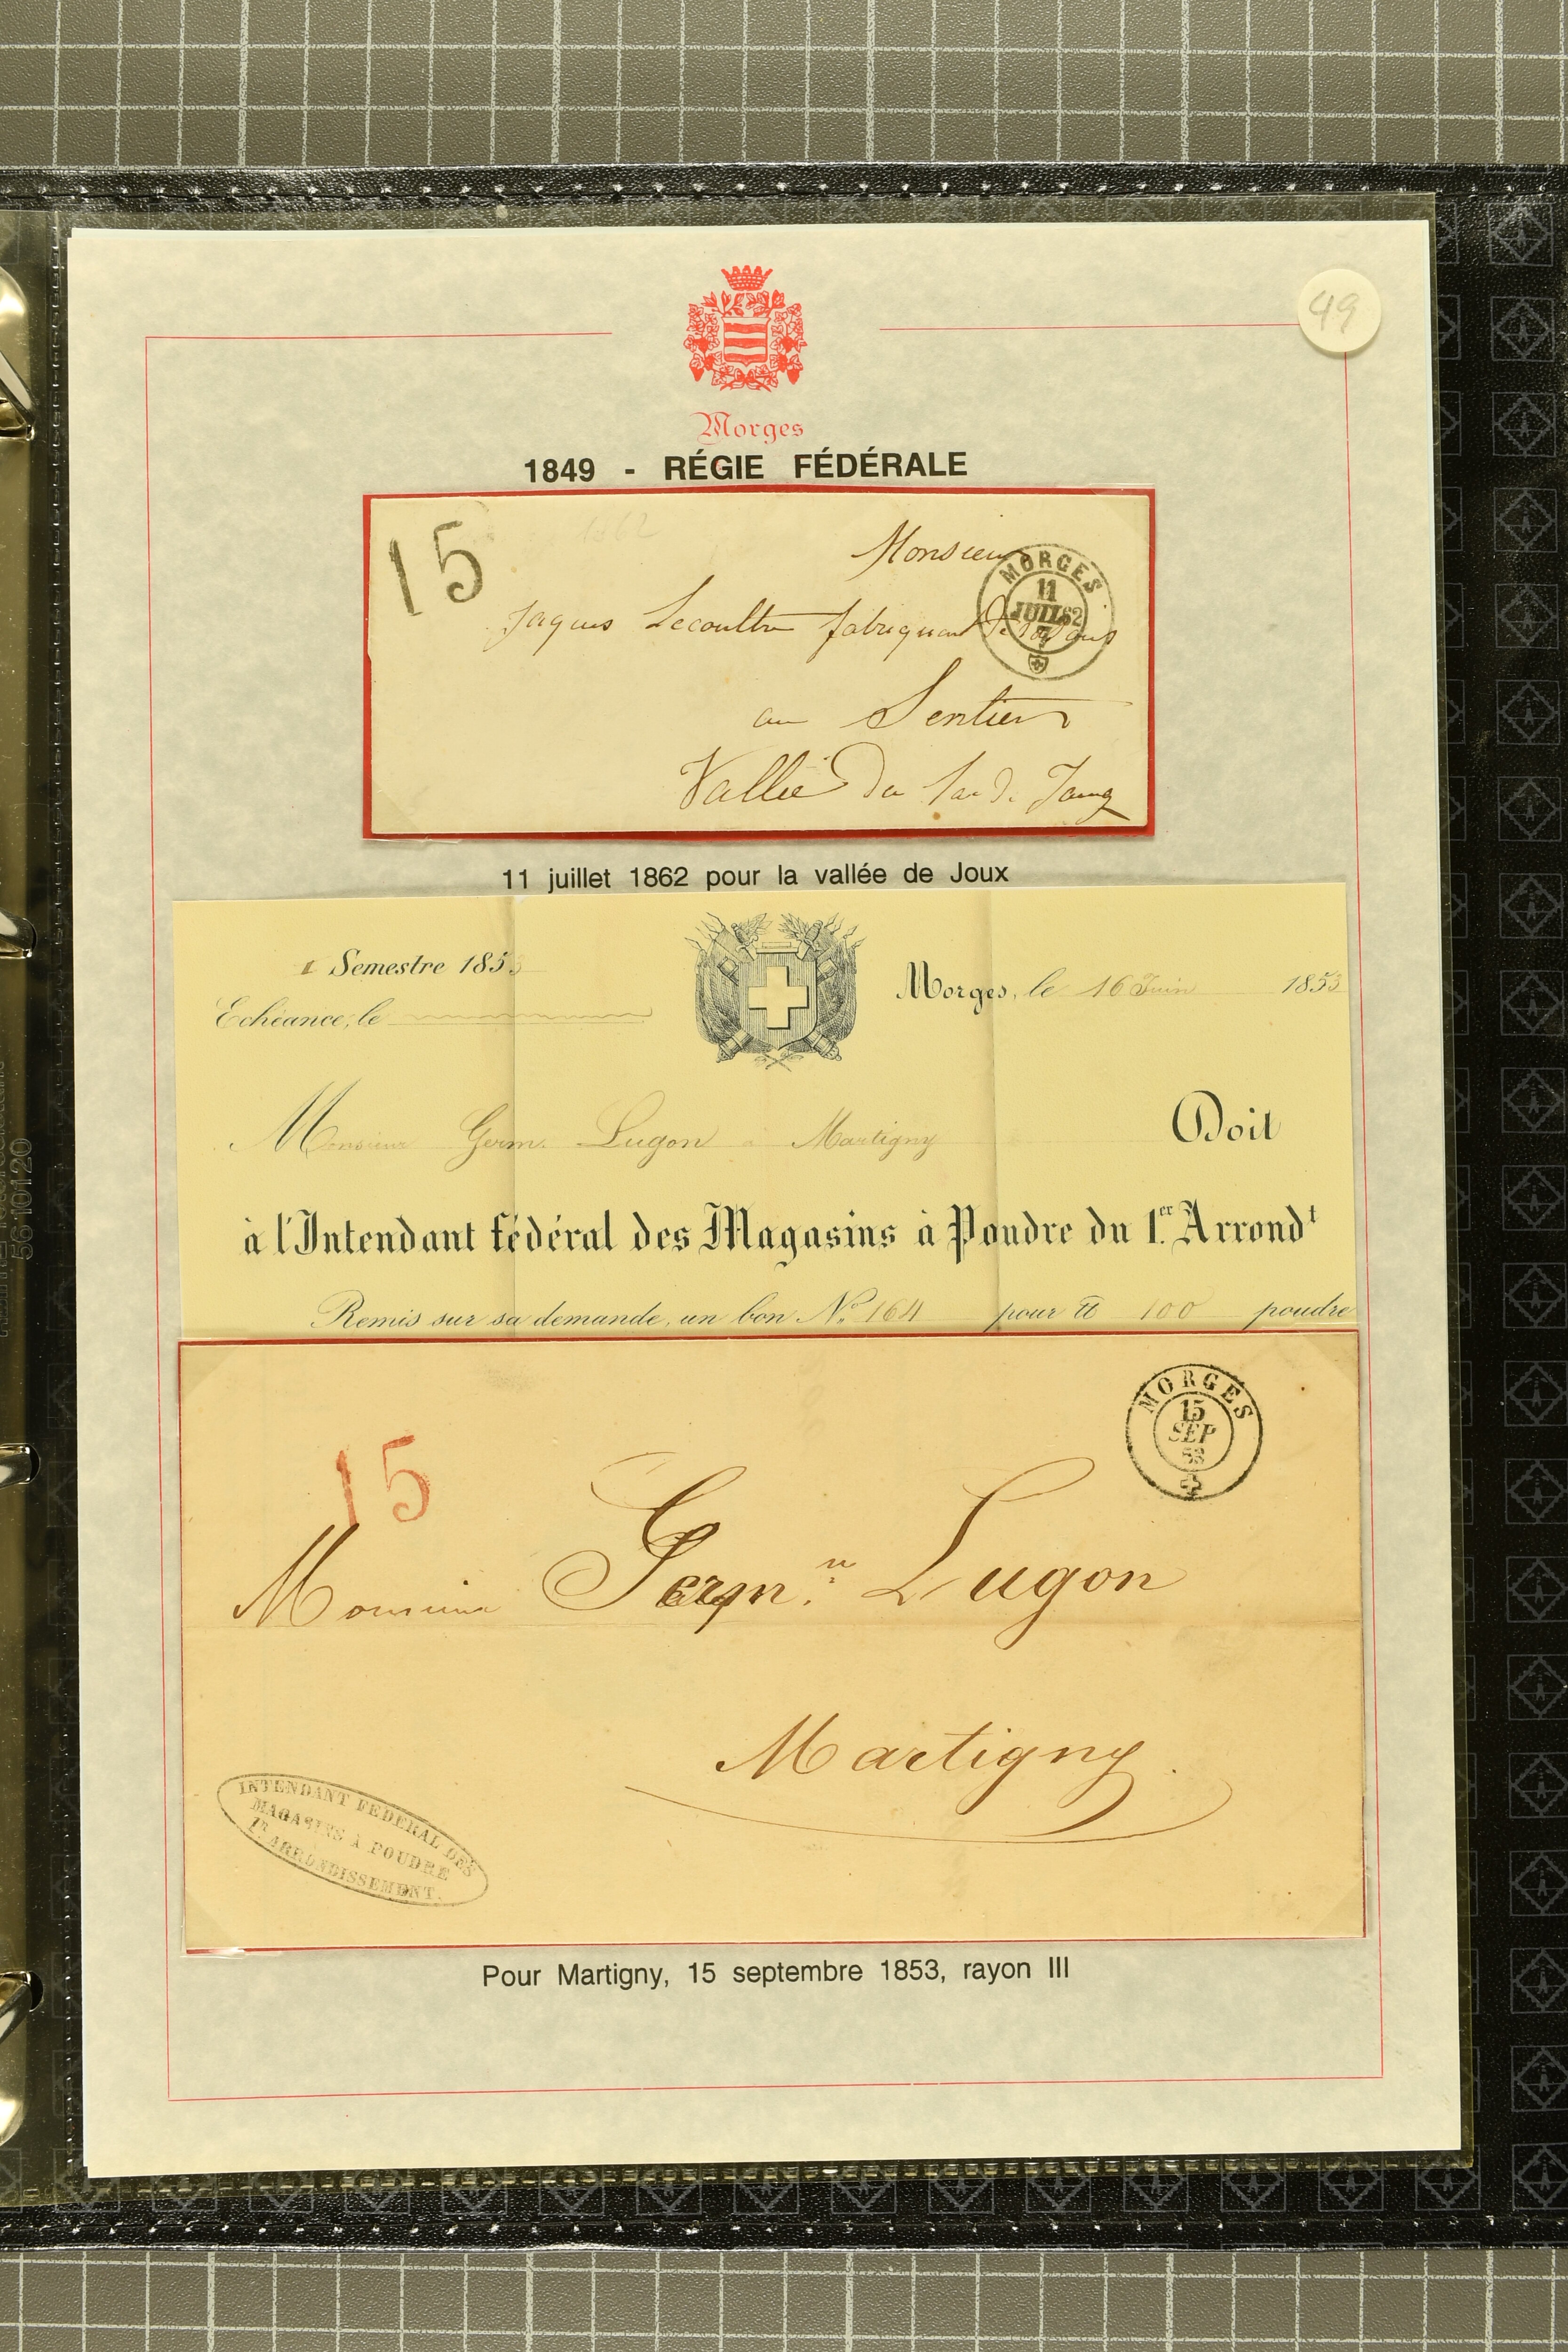 49
Morges
1849 - RÉGIE FÉDÉRALE
15
1862
Monsieur
MORGES
11
JUIL 62
7
Jaques Lecoultre fabriquant de
au Sentier
Vallée du Lac d. Joux
11 juillet 1862 pour la vallée de Joux
1 Semestre 1853
Morges, le 16 Juin 1853
Echéance, le
Monsieur Germ. Lugon a Martigny
Doit
à l'Intendant fédéral des Magasins à Poudre du 1.er Arrond.t
Remis sur sa demande, un bon N.o 164 pour ℔ 100 poudre
MORGES
15
SEP
53
15
Monsieur Germ.n Lugon
Martigny
INTENDANT FEDERAL DES
MAGASINS À POUDRE
1.R ARRONDISSEMENT.
Pour Martigny, 15 septembre 1853, rayon III
56 10120